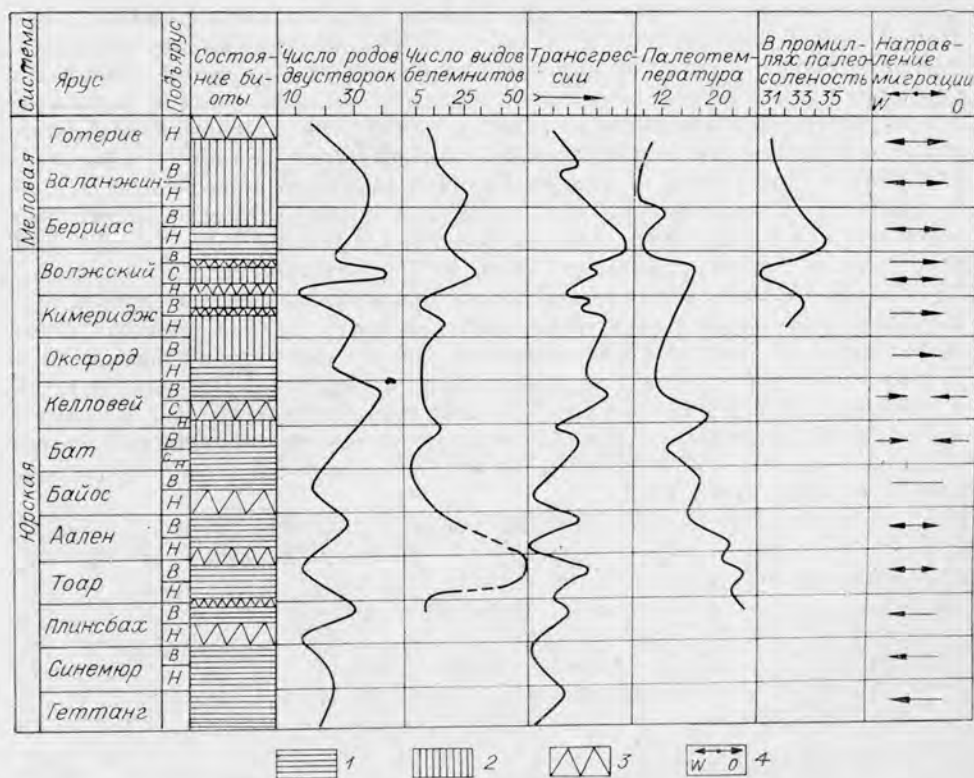 Система
Ярус
Подъярус
Состоя-
ние би-
оты
Число родов
двустворок
10 30
Число видов
белемнитов
5 25 50
Трансгрес-
сии
Палеотем-
пература
12 20
В промил-
лях палео-
соленость
31 33 35
Направ-
ление
миграции
W O
Меловая
Готерив Н
Валанжин В
Н
Берриас В
Н
Юрская
Волжский В
С
Н
Кимеридж В
Н
Оксфорд В
Н
Келловей В
С
Н
Бат В
С
Н
Байос В
Н
Аален В
Н
Тоар В
Н
Плинсбах В
Н
Синемюр В
Н
Геттанг
1 2 3 W O 4